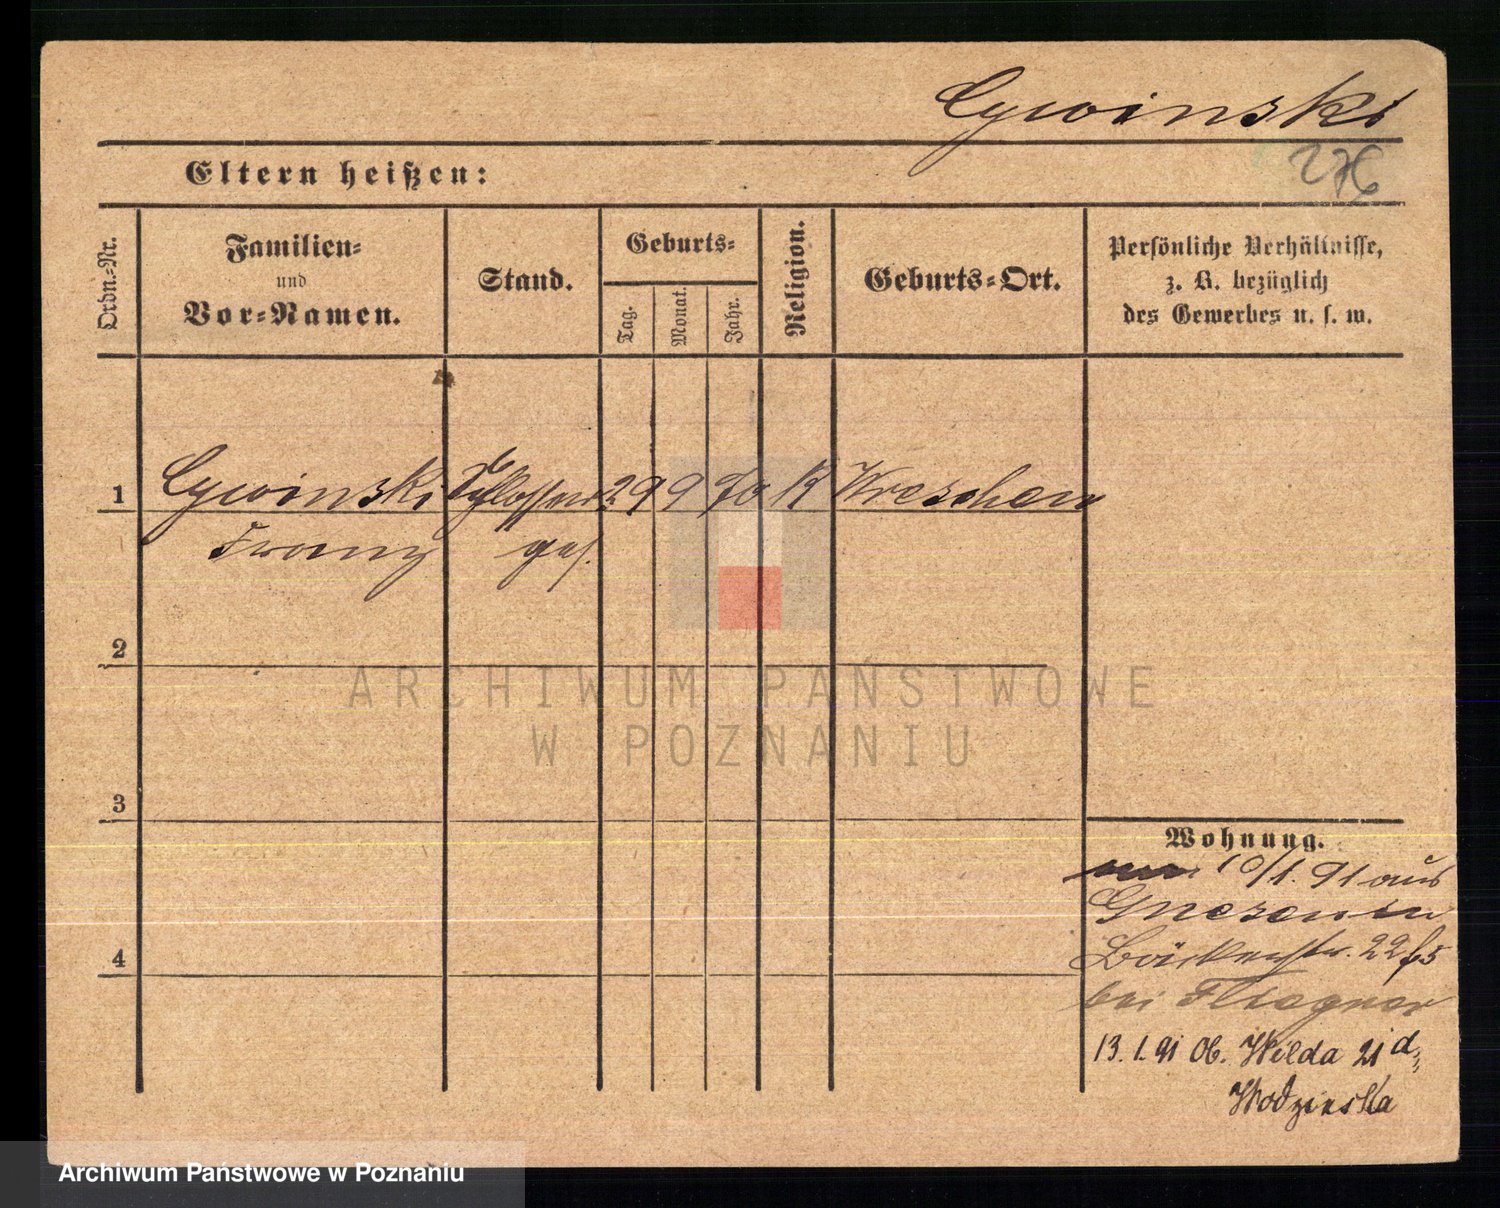 Cywinski
276
Eltern heißen:
Ordn.-Nr.
Familien-
und
Vor-Namen.
Stand.
Geburts-
Tag.
Monat.
Jahr.
Religion.
Geburts-Ort.
Persönliche Verhältnisse,
z. B. bezüglich
des Gewerbes u. s. w.
1 Cywinski Schlosser 29 9 70 K Wreschen
Franz ges.
2
3
4
Wohnung.
10/1. 91 aus
Gnesen in
Bäckerstr. 22
bei
13. 1. 91 Ob. Wilda 21 d.
Wodzinska
ARCHIWUM PAŃSTWOWE
W POZNANIU
Archiwum Państwowe w Poznaniu